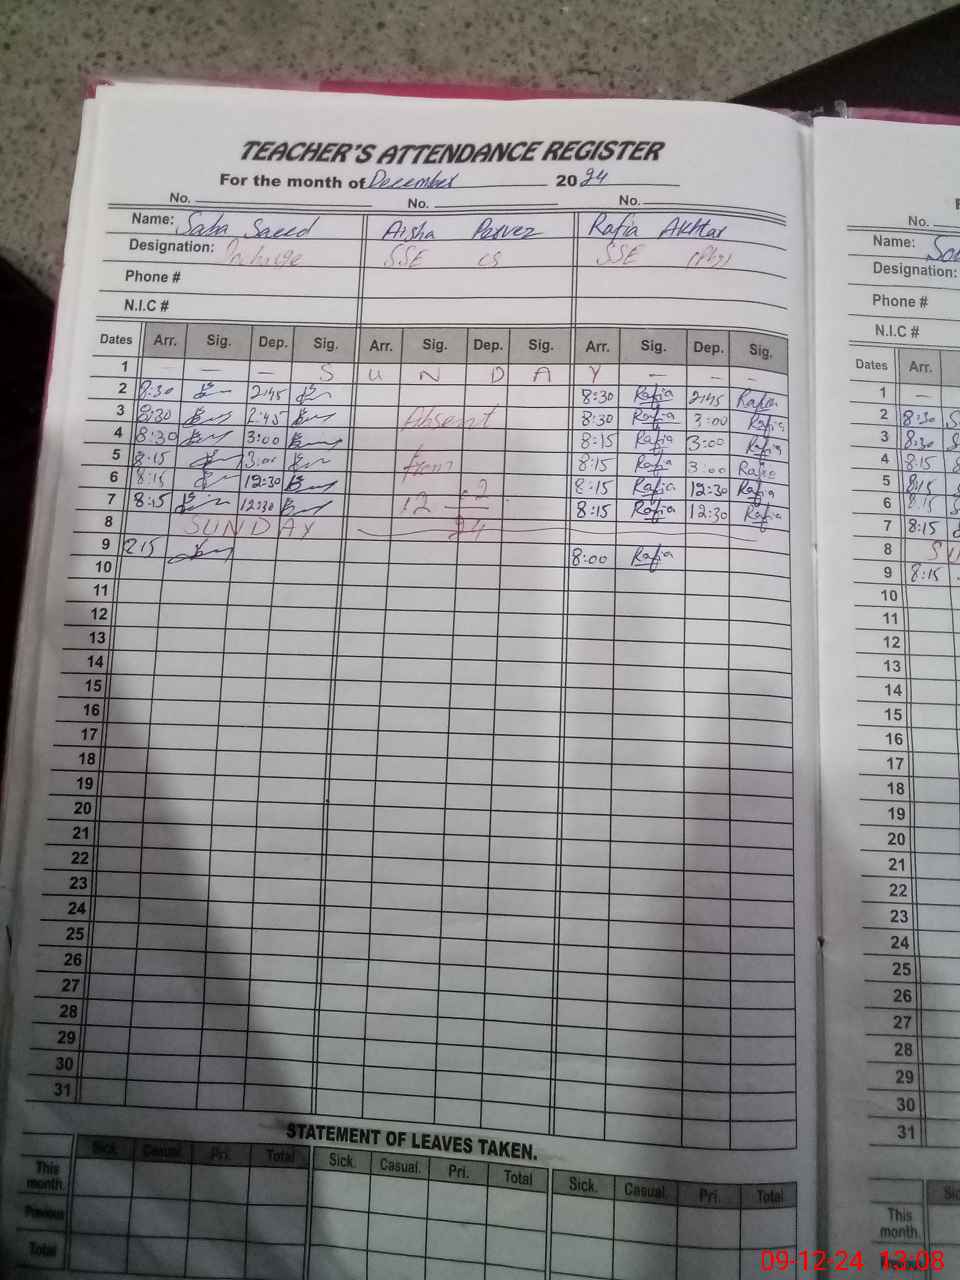 TEACHER'S ATTENDANCE REGISTER
For the month of December 2024
No. No. No.
Name: Saba Saeed Aisha Pervez Rafia Akhtar
Designation: Incharge SSE CS SSE (Phy)
Phone #
N.I.C #
Dates Arr. Sig. Dep. Sig. Arr. Sig. Dep. Sig. Arr. Sig. Dep. Sig.
1 — — — S U N D A Y — — —
2 8:30 2:45 8:30 Rafia 2:45 Rafia
3 8:30 2:45 Absent 8:30 Rafia 3:00 Rafia
4 8:30 3:00 8:15 Rafia 3:00 Rafia
5 8:15 3:00 from 8:15 Rafia 3:00 Rafia
6 8:15 12:30 8:15 Rafia 12:30 Rafia
7 8:15 12:30 8:15 Rafia 12:30 Rafia
8 SUNDAY 24
9 8:00 Rafia
10
11
12
13
14
15
16
17
18
19
20
21
22
23
24
25
26
27
28
29
30
31
STATEMENT OF LEAVES TAKEN.
Sick. Casual. Pri. Total Sick. Casual. Pri. Total Sick. Casual. Pri. Total
This month.
Previous
Total
No.
Name:
Designation:
Phone #
N.I.C #
Dates Arr.
1 —
2 8:30
3 8:30
4 8:15
5 8:15
6 8:15
7 8:15
8 S U
9 8:15
10
11
12
13
14
15
16
17
18
19
20
21
22
23
24
25
26
27
28
29
30
31
This month.
09-12-24 12:08